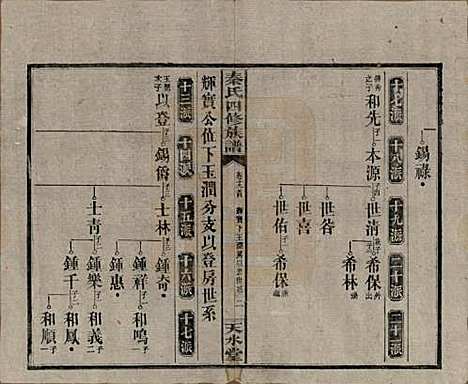 錫祿
十七派 十八派 十九派 二十派 二十一派
和先 本源 世清 希保
希林
世谷
世喜
世佑 希保
秦氏四修族譜
天水堂
輝實公位下玉潤分支以登房世系
十三派 十四派 十五派 十六派 十七派
以登 錫爵 士林 鍾奇
鍾祥 和鳴
鍾惠
士青 鍾樂 和義
鍾千 和鳳
和順